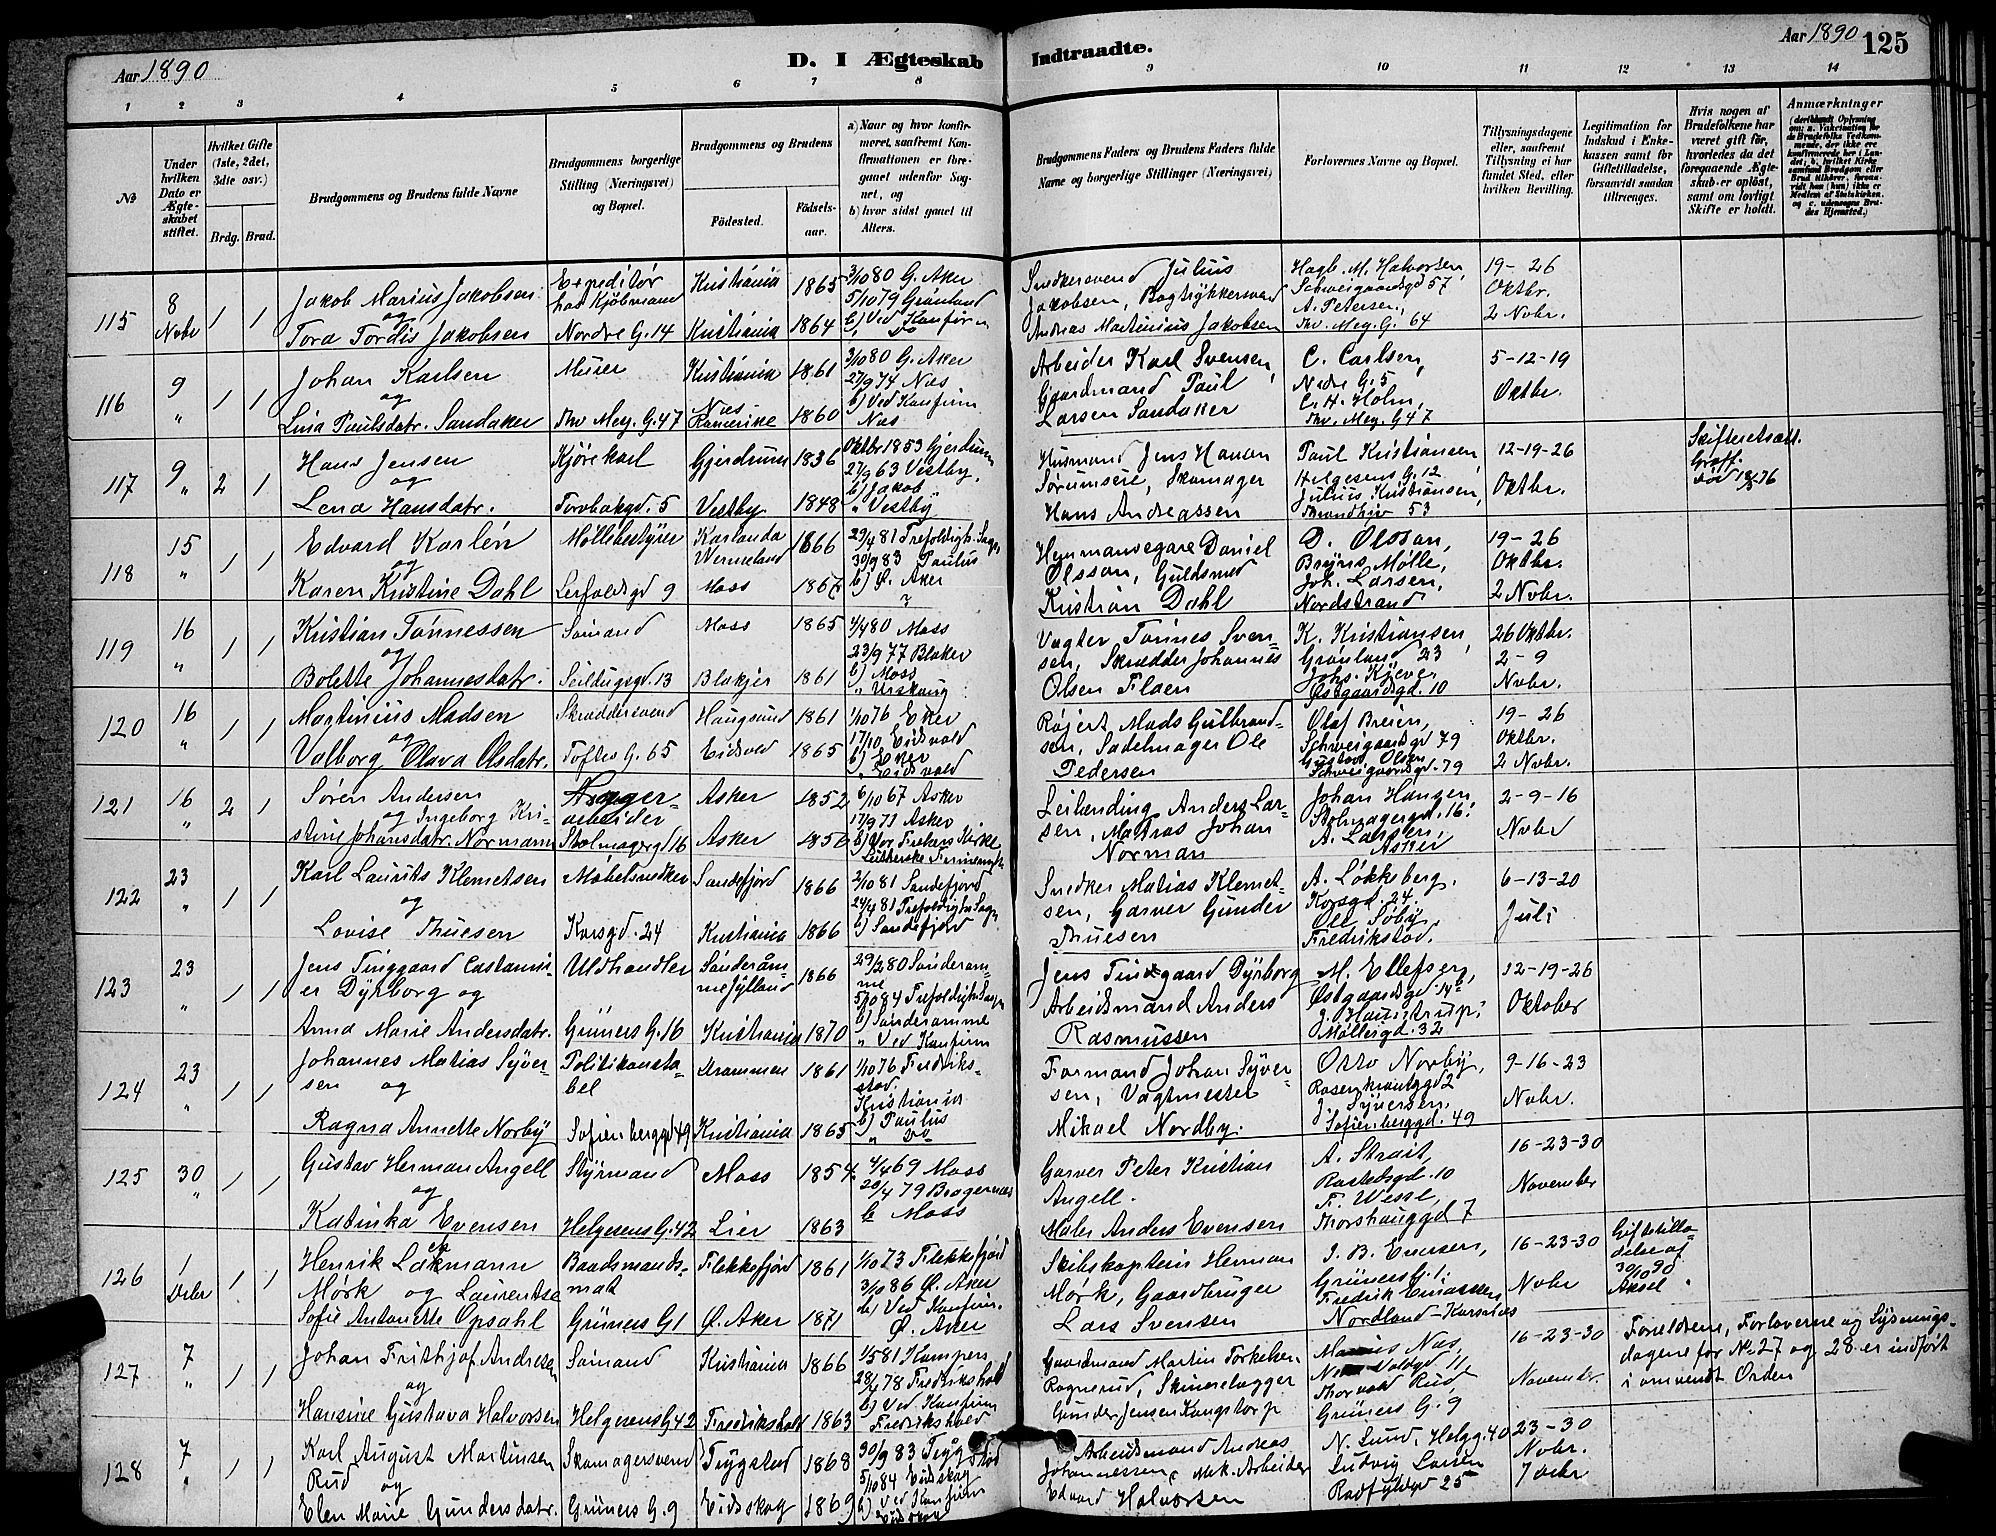 Aar 1890
D. I Ægteskab
Indtraadte.
Aar 1890
125
1 2 3 4 5 6 7 8 9 10 11 12 13 14
No
Under hvilken Dato er Ægteskabet stiftet.
Hvilket Gifte (1ste, 2det, 3dte osv.)
Brdg. Brud.
Brudgommens og Brudens fulde Navne
Brudgommens borgerlige Stilling (Næringsvei) og Bopæl.
Brudgommens og Brudens
Fødested.
Fødselsaar.
a) Naar og hvor konfirmeret, saafremt Konfirmationen er foregaaet udenfor Sognet, og
b) hvor sidst gaaet til Alters.
Brudgommens Faders og Brudens Faders fulde Navne og borgerlige Stillinger (Næringsvei)
Forlovernes Navne og Bopæl.
Tillysningsdagene eller, saafremt Tillysning ei har fundet Sted, efter hvilken Bevilling.
Legitimation for Indskud i Enkekassen samt for Giftetilladelse, forsaavidt saadan tiltrænges.
Hvis nogen af Brudefolkene har været gift før, hvorledes da det foregaaende Ægteskab er opløst, samt om lovligt Skifte er holdt.
Anmærkninger
115 8 Nobr 1 1
Jakob Marius Jakobsen
og
Tora Tordis Jakobsen
Expeditør hos Kjøbmand
Nordre G. 14
Kristiania 1865
Kristiania 1864
3/10 80 G. Aker
5/10 79 Grønland
b) Ved Konfirm
Snedkersvend Julius
Jakobsen, Bogtrykkersvend
Andreas Martinius Jakobsen
Hagb. M. Halvorsen,
Schweigaardsgd 57
A. Petersen,
Thv. Mey. G. 64
19-26
Oktbr.
2 Nobr.
116 9 " 1 1
Johan Karlsen
og
Lina Paulsdatr. Sandaker
Murer
Thv Mey. G. 47
Kristiania 1861
Næs Romerike 1860
3/10 80 G. Aker
27/9 74 Næs
b) Ved Konfirm
Næs
Arbeider Karl Svensen,
Gaardmand Paul
Larsen Sandaker
C. Carlsen,
Nedre G. 5
C. H. Holm,
Thv. Mey. G 47
5-12-19
Oktbr.
117 9 " 2 1
Hans Jensen
og
Lena Hansdatr.
Kjørekarl
Torvbakgd. 5
Gjerdrum 1836
Vestby 1848
Oktbr 1853 Gjerdrum
27/9 63 Vestby.
b) Jakob
" Vestby
Husmand Jens Hanan
Sørumseie, Skomager
Hans Andreassen
Paul Kristiansen
Helgesens G. 12
Julius Kristiansen,
Trondhjv 53
12-19-26
Oktbr.
Skifteretsatt.
118 15 " 1 1
Edvard Karlén
og
Karen Kristine Dahl
Møllebestyrer
Lerfaldsgd 9
Karlanda Wermeland 1866
Moss 1867
29/4 81 Trefoldigh. Sogn
30/9 83 Paulus
b) Ø. Aker
Hemmansegare Daniel
Olsson, Guldsmed
Kristian Dahl
D. Olsson,
Bryns Mølle,
Joh. Larsen,
Nordstrand
19-26
Oktbr.
2 Nobr.
119 16 " 1 1
Kristian Tønnessen
og
Bolette Johannesdatr.
Sømand
Seildugsgd. 13
Moss 1865
Blakjer 1861
1/4 80 Moss
23/9 77 Blaker
b) Moss
" Urskoug
Vagter Tønnes Svensen, Skrædder Johannes
Olsen Flaen
K. Kristiansen,
Grønland 23
Johs. Kjever
Østgaardsgd. 10
26 Oktbr.
2-9
Nobr.
120 16 " 1 1
Martinius Madsen
og
Valborg Olava Olsdatr.
Skræddersvend
Toftes G. 65
Haugsund 1861
Eidsvold 1865
1/10 76 Eker
17/10 Eidsvold
b) Eker
" Eidsvold
Røiert Mads Gulbrandsen, Sadelmager Ole
Pedersen
Olaf Breien,
Schweigaardsgd 79
Gustav Olsen
Schweigaardsgd. 79
19-26
Oktbr.
2 Nobr.
121 16 " 2 1
Søren Andersen
og Ingeborg Kristine Johansdatr. Normann
arbeider
Stolmagergd 16
Asker 1852
Asker 1856
6/10 67 Asker
17/9 71 Asker
b) Vor Frelsers Kirke
Leilænding Anders Larsen, Matros Johan
Norman
Johan Hansen
Stolmagergd. 16.
A. Larsen,
Asker
2-9-16
Nobr
122 23 " 1 1
Karl Laurits Klemetsen
og
Lovise Thuesen
Møbelsnedker
Korsgd. 24
Sandefjord 1866
Kristiania 1866
2/10 81 Sandefjord
24/4 81 Trefoldigh. Sogn
b) Sandefjord
Snedker Matias Klemetsen, Garver Gunder
Thuesen
A. Løkkeberg,
Korsgd. 24.
Ole Søby,
Fredrikstad.
6-13-20
Juli
123 23 " 1 1
Jens Tinggaard Castanier Dyrborg og
Anna Marie Andersdatr.
Uldhandler
Grüners G. 16
Sønderømme Jylland 1866
Kristiania 1870
29/2 80 Sønderømme
5/10 84 Trefoldigh. Sogn
b) Sønderomme
" Ved Konfirm
Jens Tinggaard Dyrborg
Arbeidsmand Anders
Rasmussen
M. Ellefsen,
Østgaardsgd. 14b
Møllergd. 32
12-19-26
Oktober
124 23 " 1 1
Johannes Matias Syversen og
Ragna Annette Norby
Politikonstabel
Sofienberggd 49
Drammen 1861
Kristiania 1865
1/10 76 Fredrikstad
Kristiania
b) Paulus
" Do
Formand Johan Syversen, Vagtmester
Mikael Nordby.
Otto Norby,
Rosenkrantzgd 2
J. Syversen.
Sofienberggd. 49
9-16-23
Nobr.
125 30 " 1 1
Gustav Herman Angell
og
Katinka Evensen
Styrmand
Helgesens G. 42
Moss 1854
Lier 1863
4/4 69 Moss
20/4 79 Bragernæs
b Moss
Garver Peter Kristian
Angell.
Maler Anders Evensen
A. Strait,
Rostedsgd. 10
F. Wesse,
Thorshauggd 7
16-23-30
November
126 1 Decbr 1 1
Henrik Lakmann
Mørk og Laurentse
Sofie Antonette Opsahl
Baadsmandsmat
Grüners G 1
Flekkefjord 1861
Ø. Aker 1871
1/10 73 Flekkefjord
3/10 86 Ø. Aker
b) Ved Konfirm.
Ø. Aker
Skibskaptein Herman
Mørk, Gaardbruger
Lars Svensen
J. B. Evensen,
Grüners G. 1.
Fredrik Einarsen
Nordland-Korsnes
16-23-30
Nobr
Giftetilladelse af
30/10 90
127 7 " 1 1
Johan Frithjof Andresen
og
Hansine Gustava Halvorsen
Sømand
Helgesens G 42
Kristiania 1866
Fredrikshald 1863
1/5 81 Kampen
28/4 78 Fredrikshald
b) Ved Konfirm
Fredrikshald
Gaardmand Martin Torkelsen
Rognerud, Skinnelægger
Gunder Jensen Kongstorp
Marius Næs,
Voldgd. 11,
Thorvald Rud,
Grüners G. 9
16-23-30
November.
Forældrene, Forloverne og Lysningsdagene for No 27 og 28 er indført
i omvendt Orden
128 7 " 1 1
Karl August Martinsen
Rud og
Elen Marie Gundersdatr.
Skomagersvend
Grüners G. 9
Trygstad 1868
Eidskog 1869
30/9 83 Trygstad
5/10 84 Eidskog
b) Ved Konfirm
Eidskog
Arbeidsmand Andreas
Johannessen, Mek. Arbeider
Edvard Halvorsen
N. Lund, Helgg. 40
Ludvig Larsen
Radfyldgd 25
23-30
Nobr.
7 Decbr